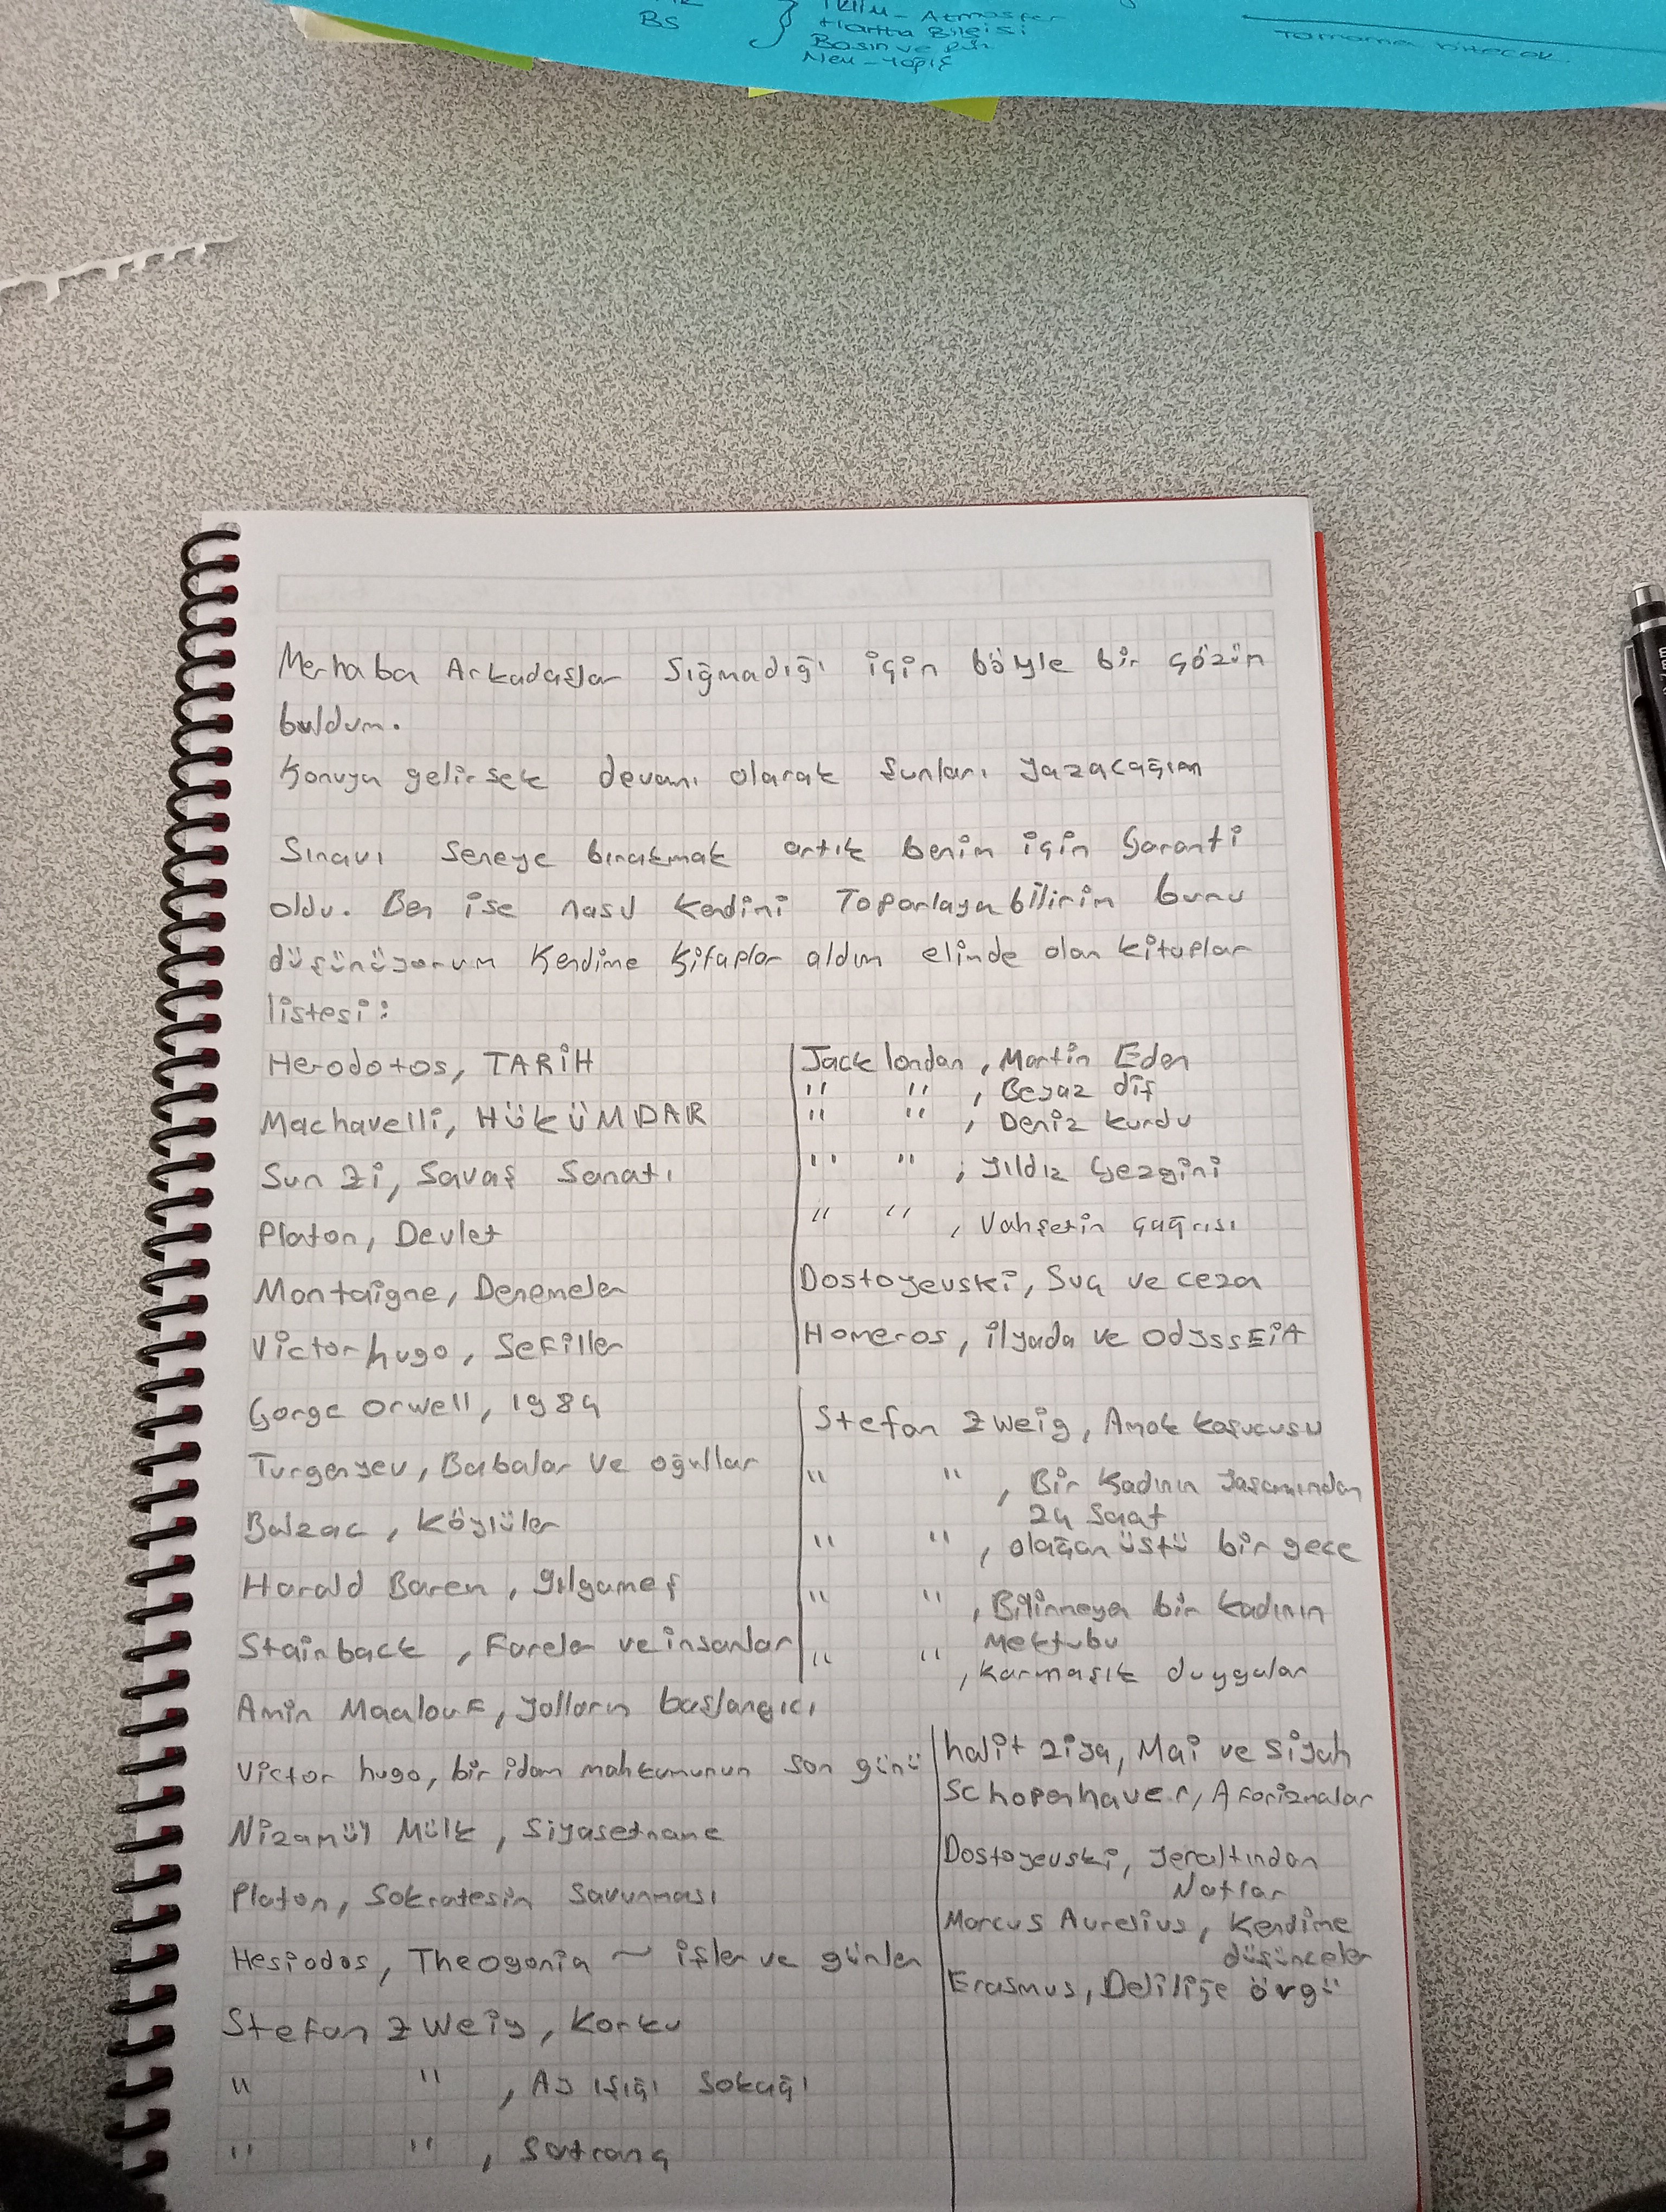 BS
İklim - Atmosfer
Harita Bilgisi
Basınç ve
tamamı bitecek
Merhaba Arkadaşlar Sığmadığı için böyle bir çözüm
buldum.
Konuya gelirsek devamı olarak şunları yazacağım
Sınavı seneye bırakmak artık benim için Garanti
oldu. Ben ise nasıl kendimi Toparlayabilirim bunu
düşünüyorum Kendime Kitaplar aldım elimde olan kitaplar
listesi:
Herodotos, TARİH
Machavelli, HÜKÜMDAR
Sun Zi, Savaş Sanatı
Platon, Devlet
Montaigne, Denemeler
Victor hugo, Sefiller
Gorge Orwell, 1984
Turgenyev, Babalar ve oğullar
Balzac, Köylüler
Harald Baren, gılgameş
Stainback, Fareler ve insanlar
Amin Maalouf, yolların başlangıcı
Victor hugo, bir idam mahkumunun son günü
Nizamül Mülk, Siyasetname
Platon, Sokratesin Savunması
Hesiodos, Theogonia ~ işler ve günler
Stefan Zweig, Korku
" " , Ay ışığı Sokağı
" " , Satranç
Jack londan, Martin Eden
" " , Beyaz diş
" " , Deniz kurdu
" " , yıldız Gezgini
" " , Vahşetin çağrısı
Dostoyevski, Suç ve ceza
Homeros, ilyada ve ODySSEİA
Stefan Zweig, Amok koşucusu
" " , Bir Kadının yaşamından
24 Saat
" " , olağanüstü bir gece
" " , Bilinmeyen bir kadının
Mektubu
" " , karmaşık duygular
halit ziya, Mai ve Siyah
Schopenhauer, Aforizmalar
Dostoyevski, yeraltından
Notlar
Marcus Aurelius, Kendime
düşünceler
Erasmus, Deliliğe övgü